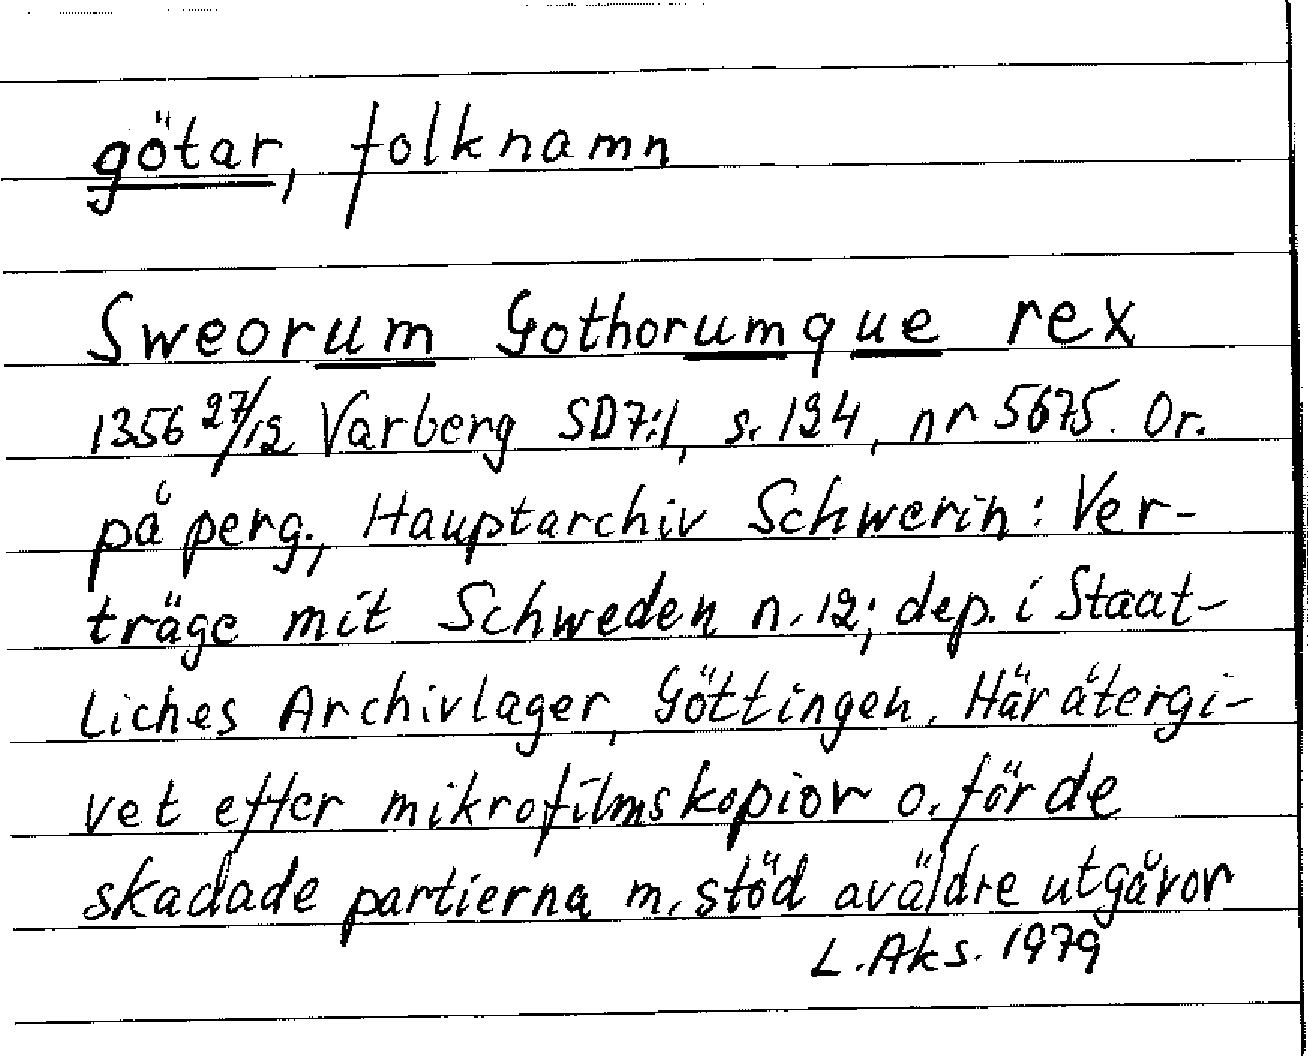 götar, folknamn
Sweorum Gothorumque rex
1356 27/12 Varberg SD7:1, s. 124, nr 5675. Or.
på perg., Hauptarchiv Schwerin: Ver-
träge mit Schweden n. 12; dep. i Staat-
liches Archivlager, Göttingen. Här återgi-
vet efter mikrofilmskopior o. för de
skadade partierna m. stöd av äldre utgåvor
L. Aks. 1979